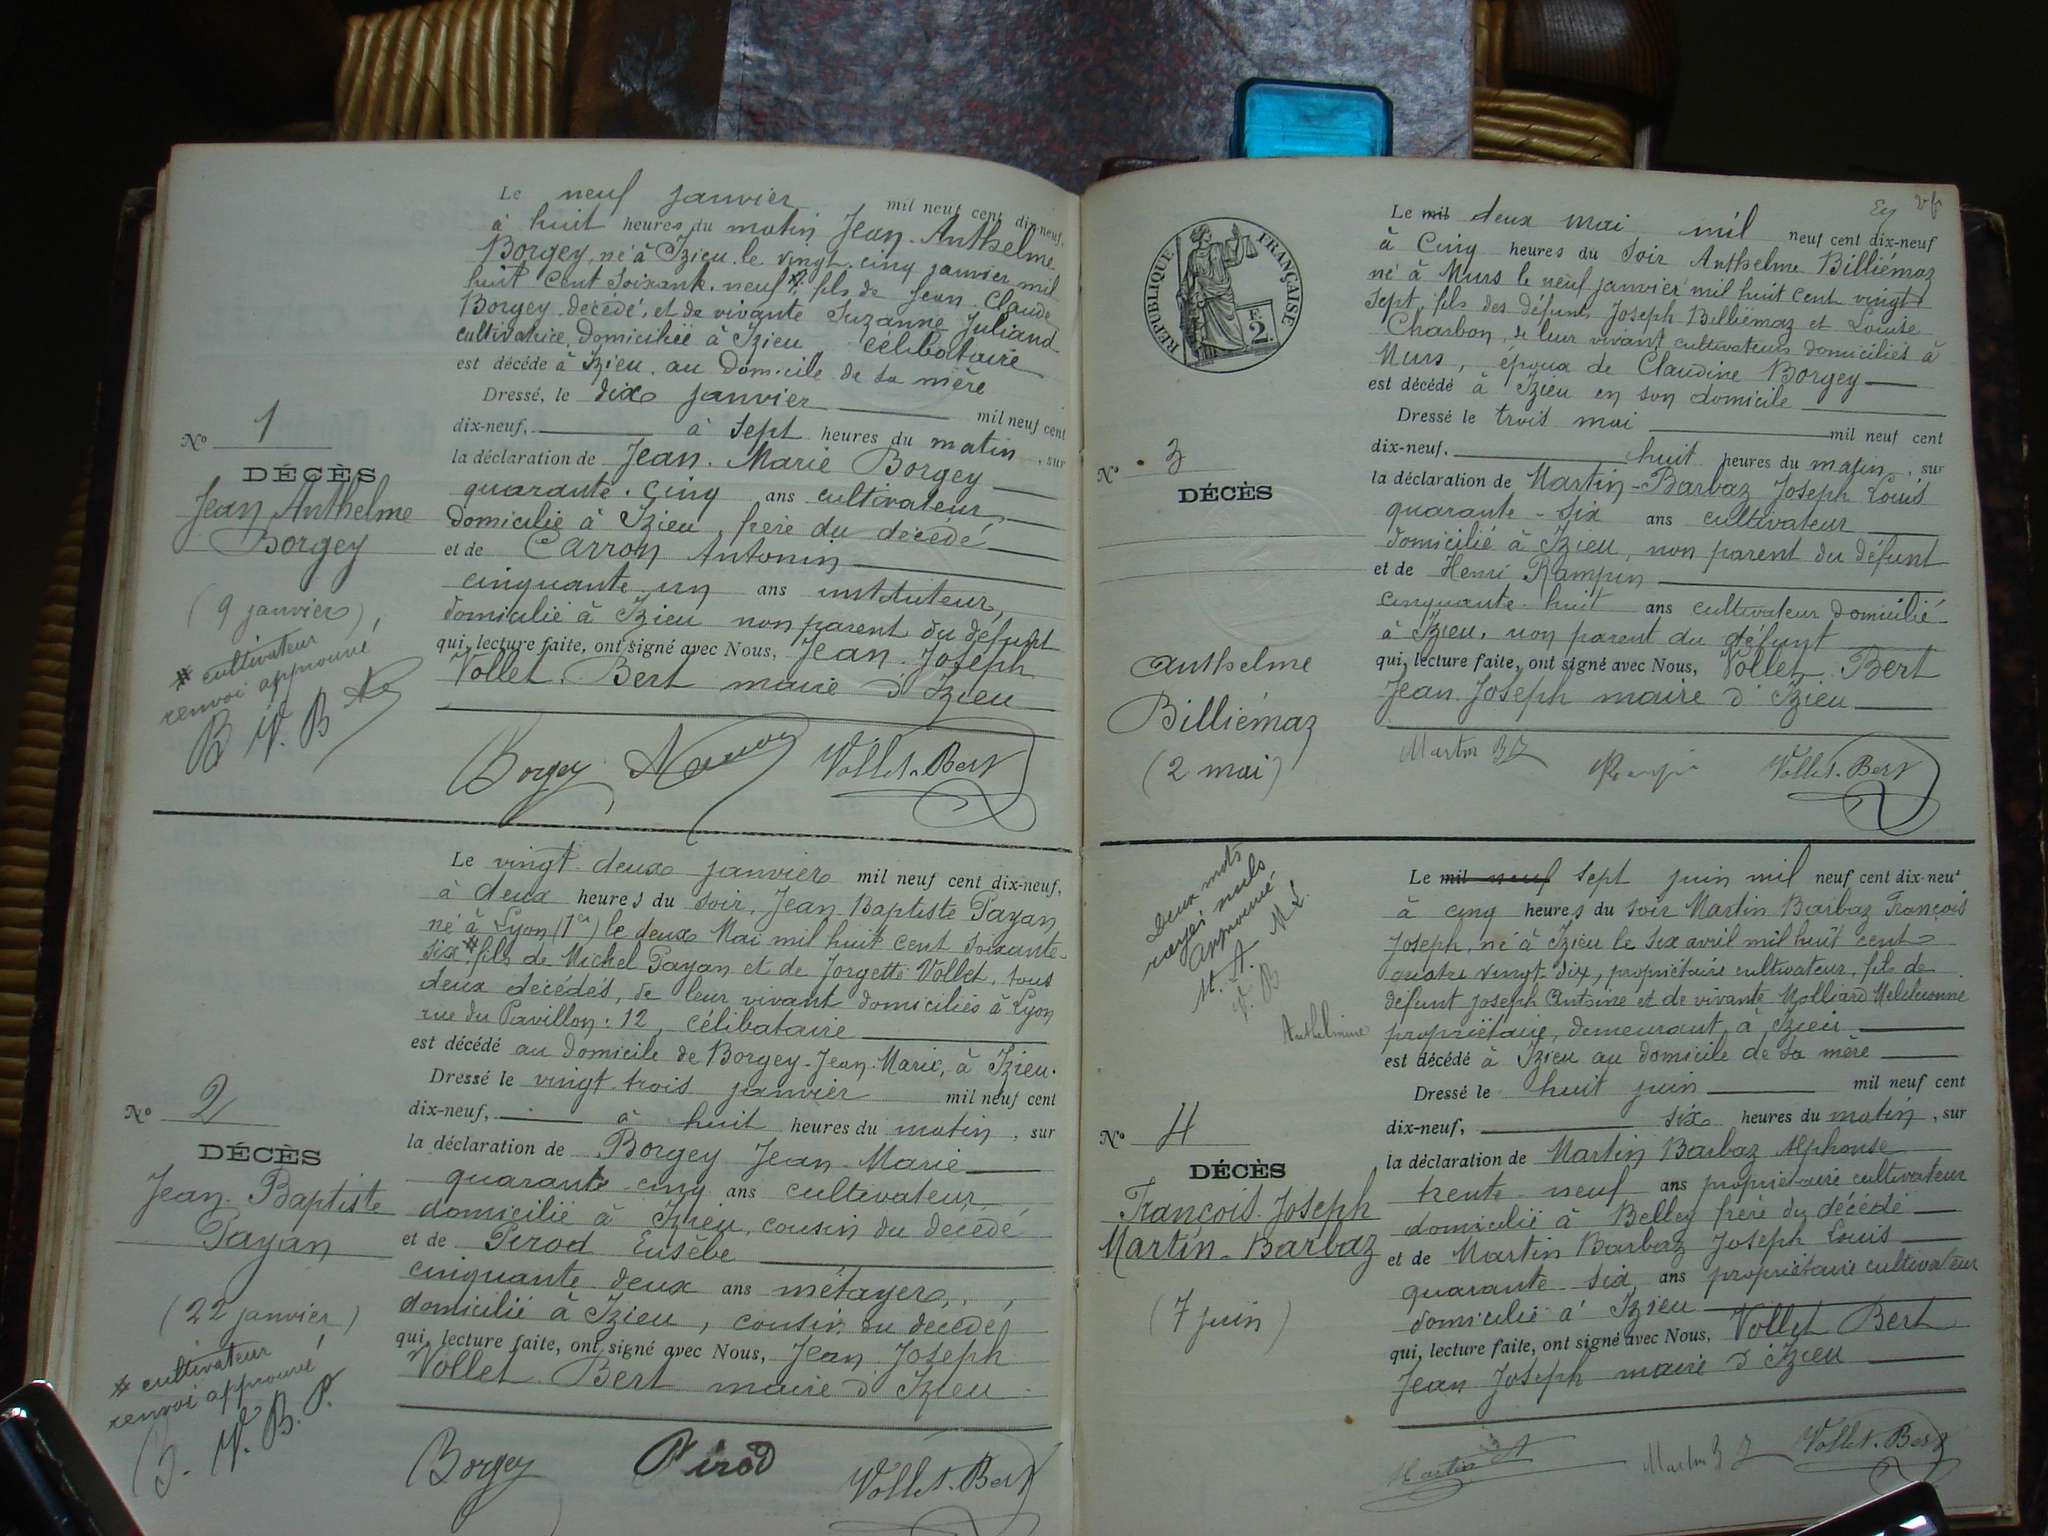 Le neuf janvier mil neuf cent dix-neuf,
à huit heures du matin Jean-Anthelme
Borgey, né à Izieu le vingt-cinq janvier mil
huit cent soixante-neuf # fils de Jean-Claude
Borgey décédé, et de vivante Suzanne Juliand
cultivatrice, domiciliée à Izieu célibataire
est décédé à Izieu, au domicile de sa mère
Dressé, le dix janvier mil neuf cent
dix-neuf, à sept heures du matin, sur
la déclaration de Jean-Marie Borgey
quarante-cinq ans cultivateur
domicilié à Izieu, frère du décédé
et de Carron Antonin
cinquante un ans instituteur,
domicilié à Izieu non parent du défunt
qui, lecture faite, ont signé avec Nous, Jean-Joseph
Vollet-Bert maire d'Izieu
Nº 1
DÉCÈS
Jean Anthelme
Borgey
(9 janvier)
# cultivateur
renvoi approuvé
B V. B
Borgey Vollet-Bert
Le vingt-deux janvier mil neuf cent dix-neuf,
à deux heures du soir, Jean Baptiste Payan
né à Lyon (1er) le deux Mai mil huit cent soixante-
six # fils de Michel Payan et de Jorgette Vollet, tous
deux décédés, de leur vivant domiciliés à Lyon
rue du Pavillon. 12, célibataire
est décédé au domicile de Borgey-Jean-Marie, à Izieu.
Dressé le vingt-trois janvier mil neuf cent
dix-neuf, à huit heures du matin, sur
la déclaration de Borgey Jean-Marie
quarante-cinq ans cultivateur
domicilié à Izieu, cousin du décédé
et de Perod Eusèbe
cinquante deux ans métayer,
domicilié à Izieu, cousin du décédé
qui, lecture faite, ont signé avec Nous, Jean-Joseph
Vollet-Bert maire d'Izieu
Nº 2
DÉCÈS
Jean-Baptiste
Payan
(22 janvier)
# cultivateur
renvoi approuvé
J. V. B. P.
Borgey Pirod Vollet-Bert
RÉPUBLIQUE FRANÇAISE
2
Le mil deux mai mil neuf cent dix-neuf
à Cinq heures du soir Anthelme Billiémaz
né à Murs le neuf janvier mil huit cent vingt
sept, fils des défunts Joseph Billiémaz et Louise
Charbon, de leur vivant cultivateurs domiciliés à
Murs, époux de Claudine Borgey
est décédé à Izieu en son domicile
Dressé le trois mai mil neuf cent
dix-neuf, huit heures du matin, sur
la déclaration de Martin-Barbaz Joseph Louis
quarante-six ans cultivateur
domicilié à Izieu, non parent du défunt
et de Henri Rampin
cinquante-huit ans cultivateur domicilié
à Izieu, non parent du défunt
qui, lecture faite, ont signé avec Nous, Vollet-Bert
Jean-Joseph maire d'Izieu
Nº 3
DÉCÈS
Anthelme
Billiémaz
(2 mai)
Martin BZ Vollet-Bert
Le mil neuf sept juin mil neuf cent dix-neuf
à cinq heures du soir Martin Barbaz François
Joseph, né à Izieu le six avril mil huit cent
quatre vingt-dix, propriétaire cultivateur, fils de
défunt Joseph Antoine et de vivante Molliard
propriétaire, demeurant à Izieu
est décédé à Izieu au domicile de sa mère
Dressé le huit juin mil neuf cent
dix-neuf, six heures du matin, sur
la déclaration de Martin Barbaz Alphonse
trente-neuf ans propriétaire cultivateur
domicilié à Belley frère du décédé
et de Martin Barbaz Joseph Louis
quarante-six ans propriétaire cultivateur
domicilié à Izieu
qui, lecture faite, ont signé avec Nous, Vollet Bert
Jean Joseph maire d'Izieu
Deux mots
rayés nuls
Approuvé
M. A. M. L.
V. B
Anthelmine
Nº 4
DÉCÈS
François-Joseph
Martin-Barbaz
(7 juin)
Martin A Martin B Z Vollet-Bert